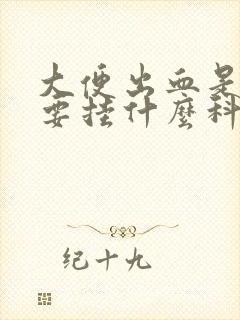 大便出血是
要挂什麼科
纪十九